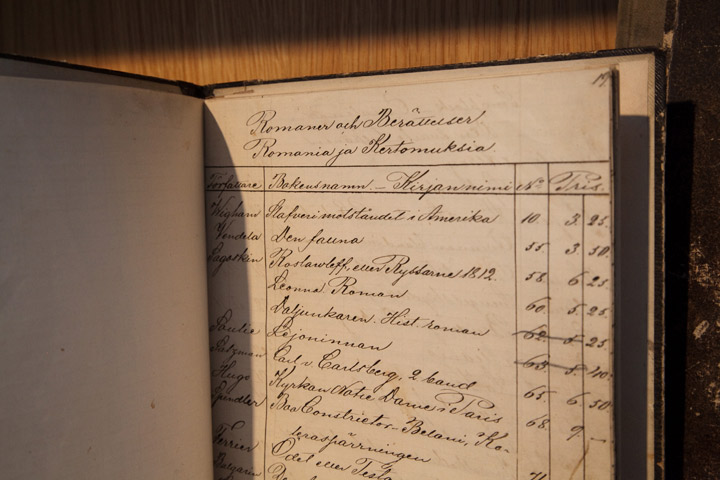 17
Romaner och Berättelser
Romania ja Kertomuksia
Författare Bokensnamn - Kirjan nimi No Pris.
Wigham Slafverimotståndet i Amerika 10. 3. 25.
Vendela Den fauna 55. 3. 50.
Sagoskin Roslawleff, eller Ryssarne 1812. 58. 6. 25.
Leonna. Roman 60. 5. 25.
Daljunkaren. Hist. roman 62. 5. 25.
Lejoninnan 63. 5. 40.
Salzman Carl v. Carlsberg, 2 band 65. 6. 50
Hugo Kyrkan Notre Dame i Paris 68. 9. -
Spindler Boa Constrictor - Belani, Ko-
Ferrier Ödet eller Testa
Bulgarin